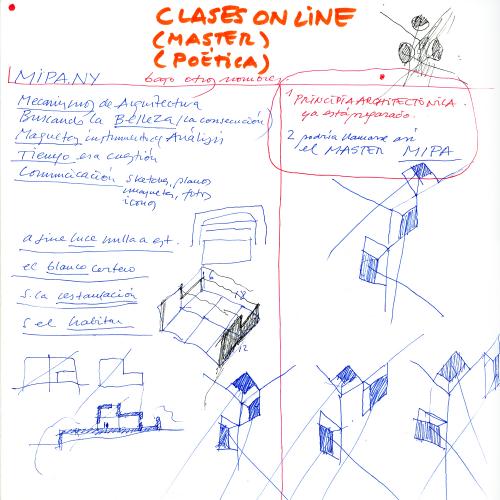 CLASES ON LINE
(MASTER)
(POËTICA)
MIPA.NY
bajo otros nombres.
Mecanismos de Arquitectura
Buscando la BELLEZA (la consecución)
Maquetas instrumentos Análisis
Tiempo esa cuestión
Comunicación sketchs, planos
maquetas, fotos
iconos
1 PRINCIPIA ARCHITECTONICA.
ya está preparado.
2 podría llamarse así
el MASTER MIPA
a sine luce nulla a est.
el blanco certero
s. la restauración
s el habitar
6
18
12